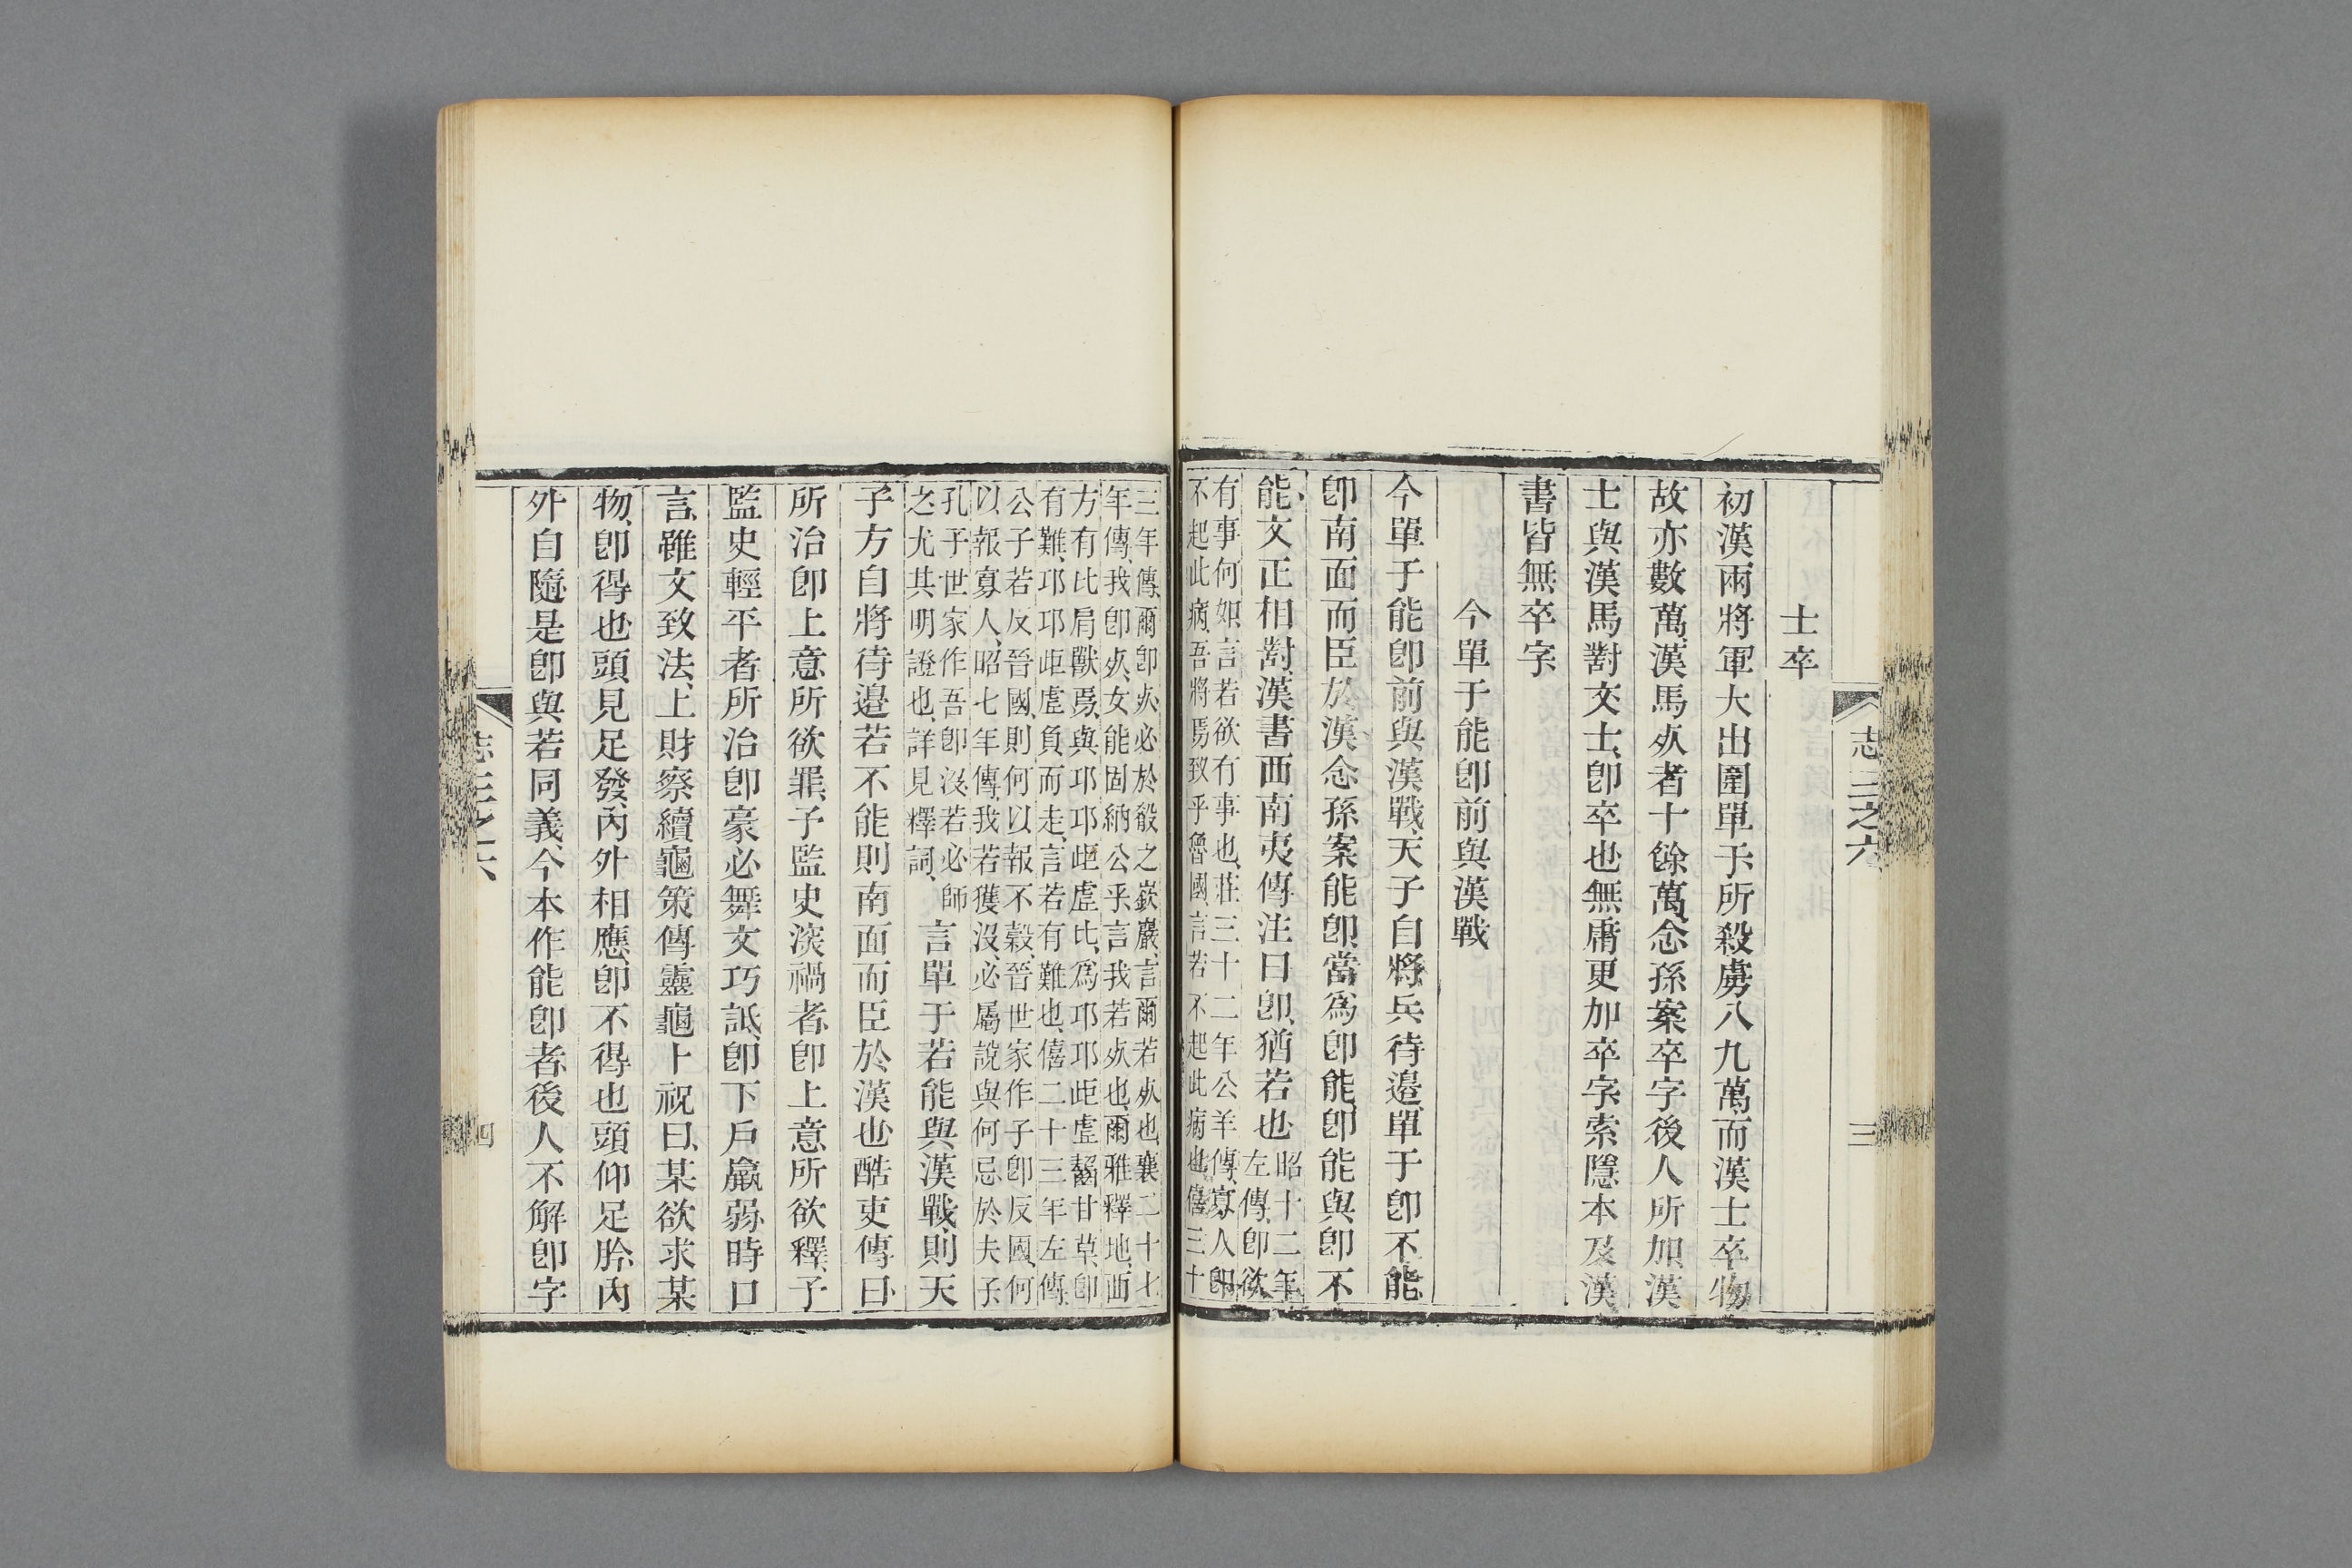 志三之六
三
士卒
初漢兩將軍大出圍單于所殺虜八九萬而漢士卒物
故亦數萬漢馬死者十餘萬念孫案卒字後人所加漢
士與漢馬對文士卽卒也無庸更加卒字索隱本及漢
書皆無卒字
今單于能卽前與漢戰
今單于能卽前與漢戰天子自將兵待邊單于卽不能
卽南面而臣於漢念孫案能卽當爲卽能卽能與卽不
能文正相對漢書西南夷傳注曰卽猶若也
昭十二年
左傳卽欲
有事何如言若欲有事也莊三十二年公羊傳寡人卽
不起此病吾將焉致乎魯國言若不起此病也僖三十
三年傳爾卽死必於殽之嶔巖言爾若死也襄二十七
年傳我卽死女能固納公乎言我若死也爾雅釋地西
方有比肩獸焉與邛邛岠虛比爲邛邛岠虛齧甘草卽
有難邛邛岠虛負而走言若有難也僖二十三年左傳
公子若反晉國則何以報不穀晉世家作子卽反國何
以報寡人昭七年傳我若獲沒必屬說與何忌於夫子
孔子世家作吾卽沒若必師
之尤其明證也詳見釋詞
言單于若能與漢戰則天
子方自將待邊若不能則南面而臣於漢也酷吏傳曰
所治卽上意所欲罪子監史深禍者卽上意所欲釋子
監史輕平者所治卽豪必舞文巧詆卽下戶羸弱時口
言雖文致法上財察續龜策傳靈龜卜祝曰某欲求某
物卽得也頭見足發內外相應卽不得也頭仰足肣內
外自隨是卽與若同義今本作能卽者後人不解卽字
志三之六
四